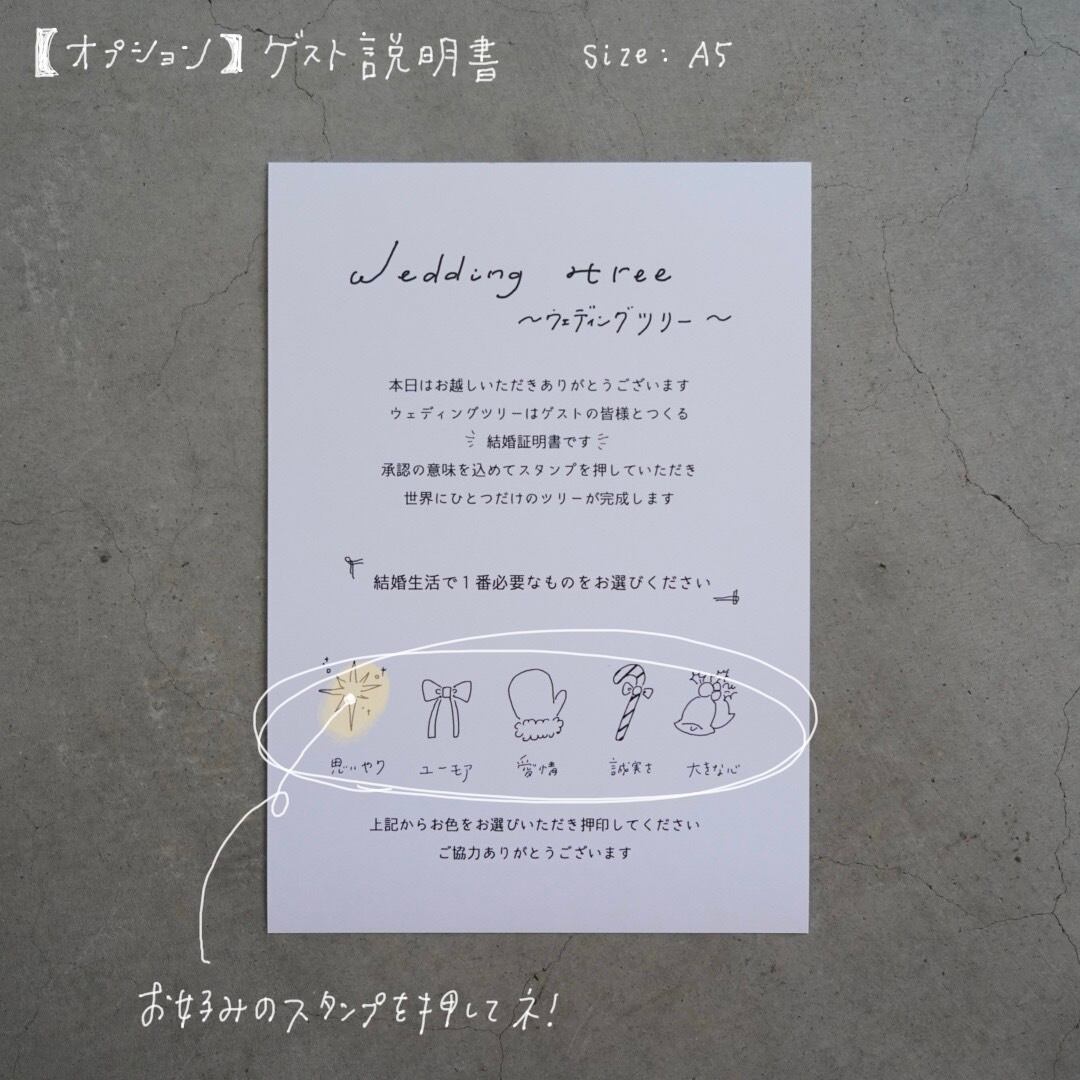 【オプション】ゲスト説明書 Size: A5
Wedding tree
～ウェディングツリー～
本日はお越しいただきありがとうございます
ウェディングツリーはゲストの皆様とつくる
結婚証明書です
承認の意味を込めてスタンプを押していただき
世界にひとつだけのツリーが完成します
結婚生活で1番必要なものをお選びください
思いやり ユーモア 愛情 誠実さ 大きな心
上記からお色をお選びいただき押印してください
ご協力ありがとうございます
お好みのスタンプを押してネ!